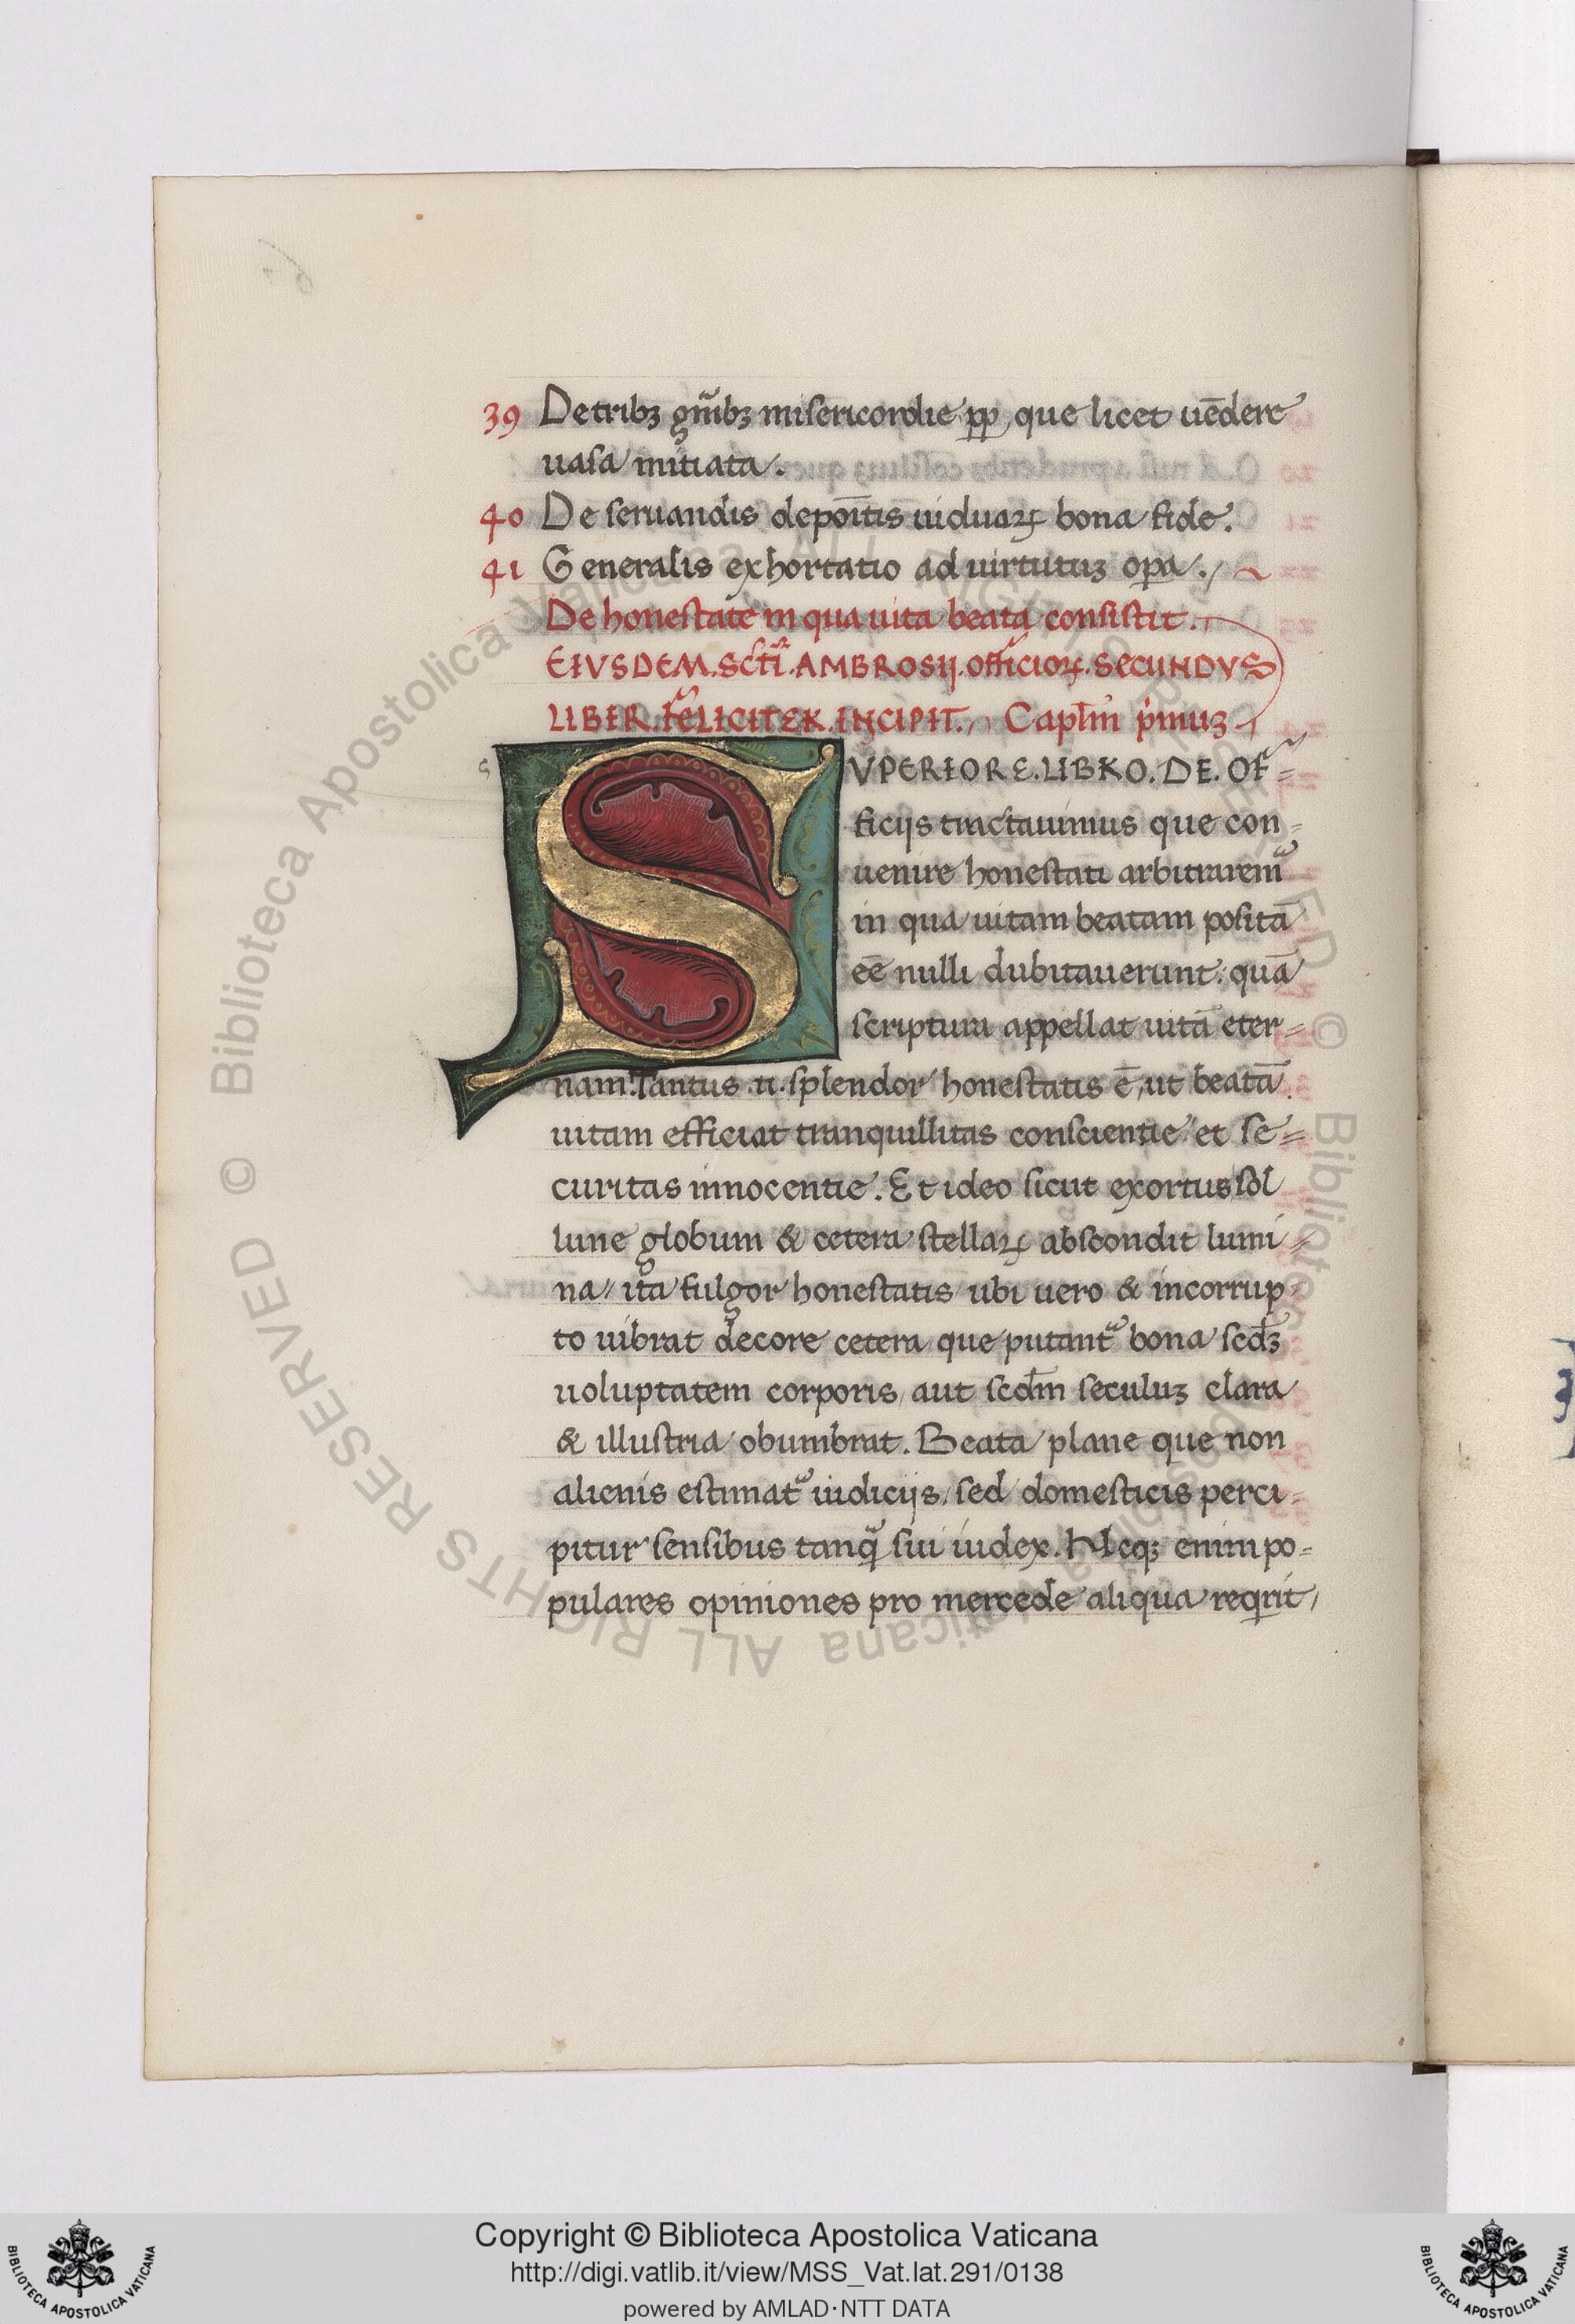 39 De tribꝫ gn̄ibꝫ misericordie ꝓp que licet uēdere
uasa initiata.
40 De seruandis depoītis uiduaꝝ bona fide.
41 Generalis exhortatio ad uirtutuꝫ opa.
De honestate in qua uita beata consistit.
EIVSDEM. Sctī. AMBROSIJ. officioꝝ. SECUNDVS
LIBER. FELICITER. INCIPIT. Capłm p̍muꝫ
s
SVPERIORE. LIBRO. DE. OF=
ficijs tractauimus que con=
uenire honestati arbitraremᷣ
in qua uitam beatam positā
eē nulli dubitauerunt: quā
scriptura appellat uitā eter=
nam. Tantus .n. splendor honestatis ē, ut beatā
uitam efficiat tranquillitas conscientie et se=
curitas innocentie. Et ideo sicut exortus sol
lune globum & cetera stellaꝝ abscondit lumi=
na / ita fulgor honestatis ubi uero & incorrup=
to uibrat decore cetera que putantᷣ bona scdꝫ
uoluptatem corporis, aut scdm̄ seculuꝫ clara
& illustria obumbrat. Beata plane que non
alienis estimatᷣ iudicijs, sed domesticis perci=
pitur sensibus tanq̄ sui iudex. Neqꝫ enim po=
pulares opiniones pro mercede aliqua reqrit,
© Biblioteca Apostolica Vaticana ALL RIGHTS RESERVED © Biblioteca Apostolica Vaticana ALL RIGHTS RESERVED
BIBLIOTECA APOSTOLICA VATICANA
Copyright © Biblioteca Apostolica Vaticana
http://digi.vatlib.it/view/MSS_Vat.lat.291/0138
powered by AMLAD·NTT DATA
BIBLIOTECA APOSTOLICA VATICANA